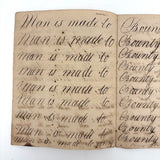 Man is made to
Man is made to
Man is made to
Man is made to
Man is made to
Man is made to
Man is made to
Man is made to
Man is made to
Bounty
Bounty
Bounty
Bounty
Bounty
Bounty
Bounty
Bounty